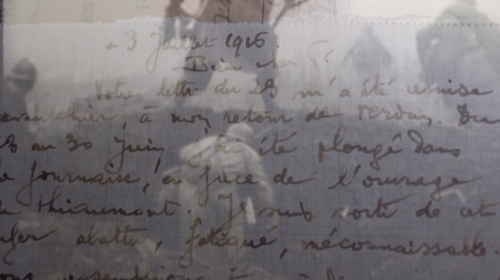 3 Juillet 1916.
Bien cher P.
Votre lettre du 23 m'a été remise
avant-hier, à mon retour de Verdun. Du
23 au 30 Juin, j'ai été plongé dans
la fournaise, en face de l'ouvrage
de Thiaumont. Je suis sorti de cet
enfer abattu, fatigué, méconnaissable.